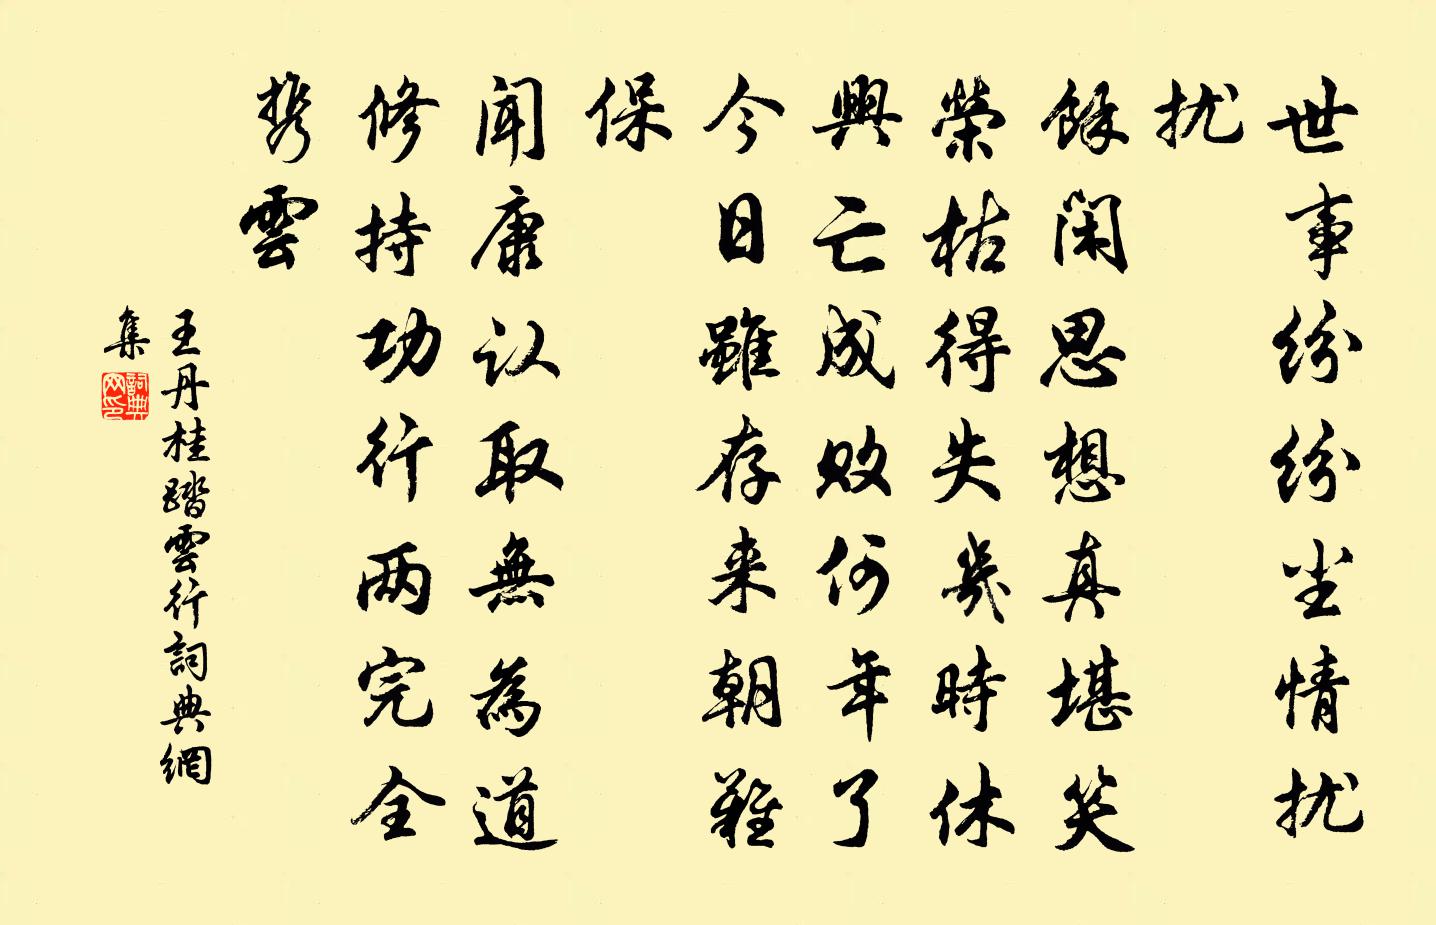 世事纷纷尘情扰
扰
馀闲思想真堪笑
荣枯得失几时休
興亡成败何年了
今日雖存来朝難
保
闻康认取無為道
修持功行两完全
携雲
王丹桂踏雲行詞典網
集
詞典网印